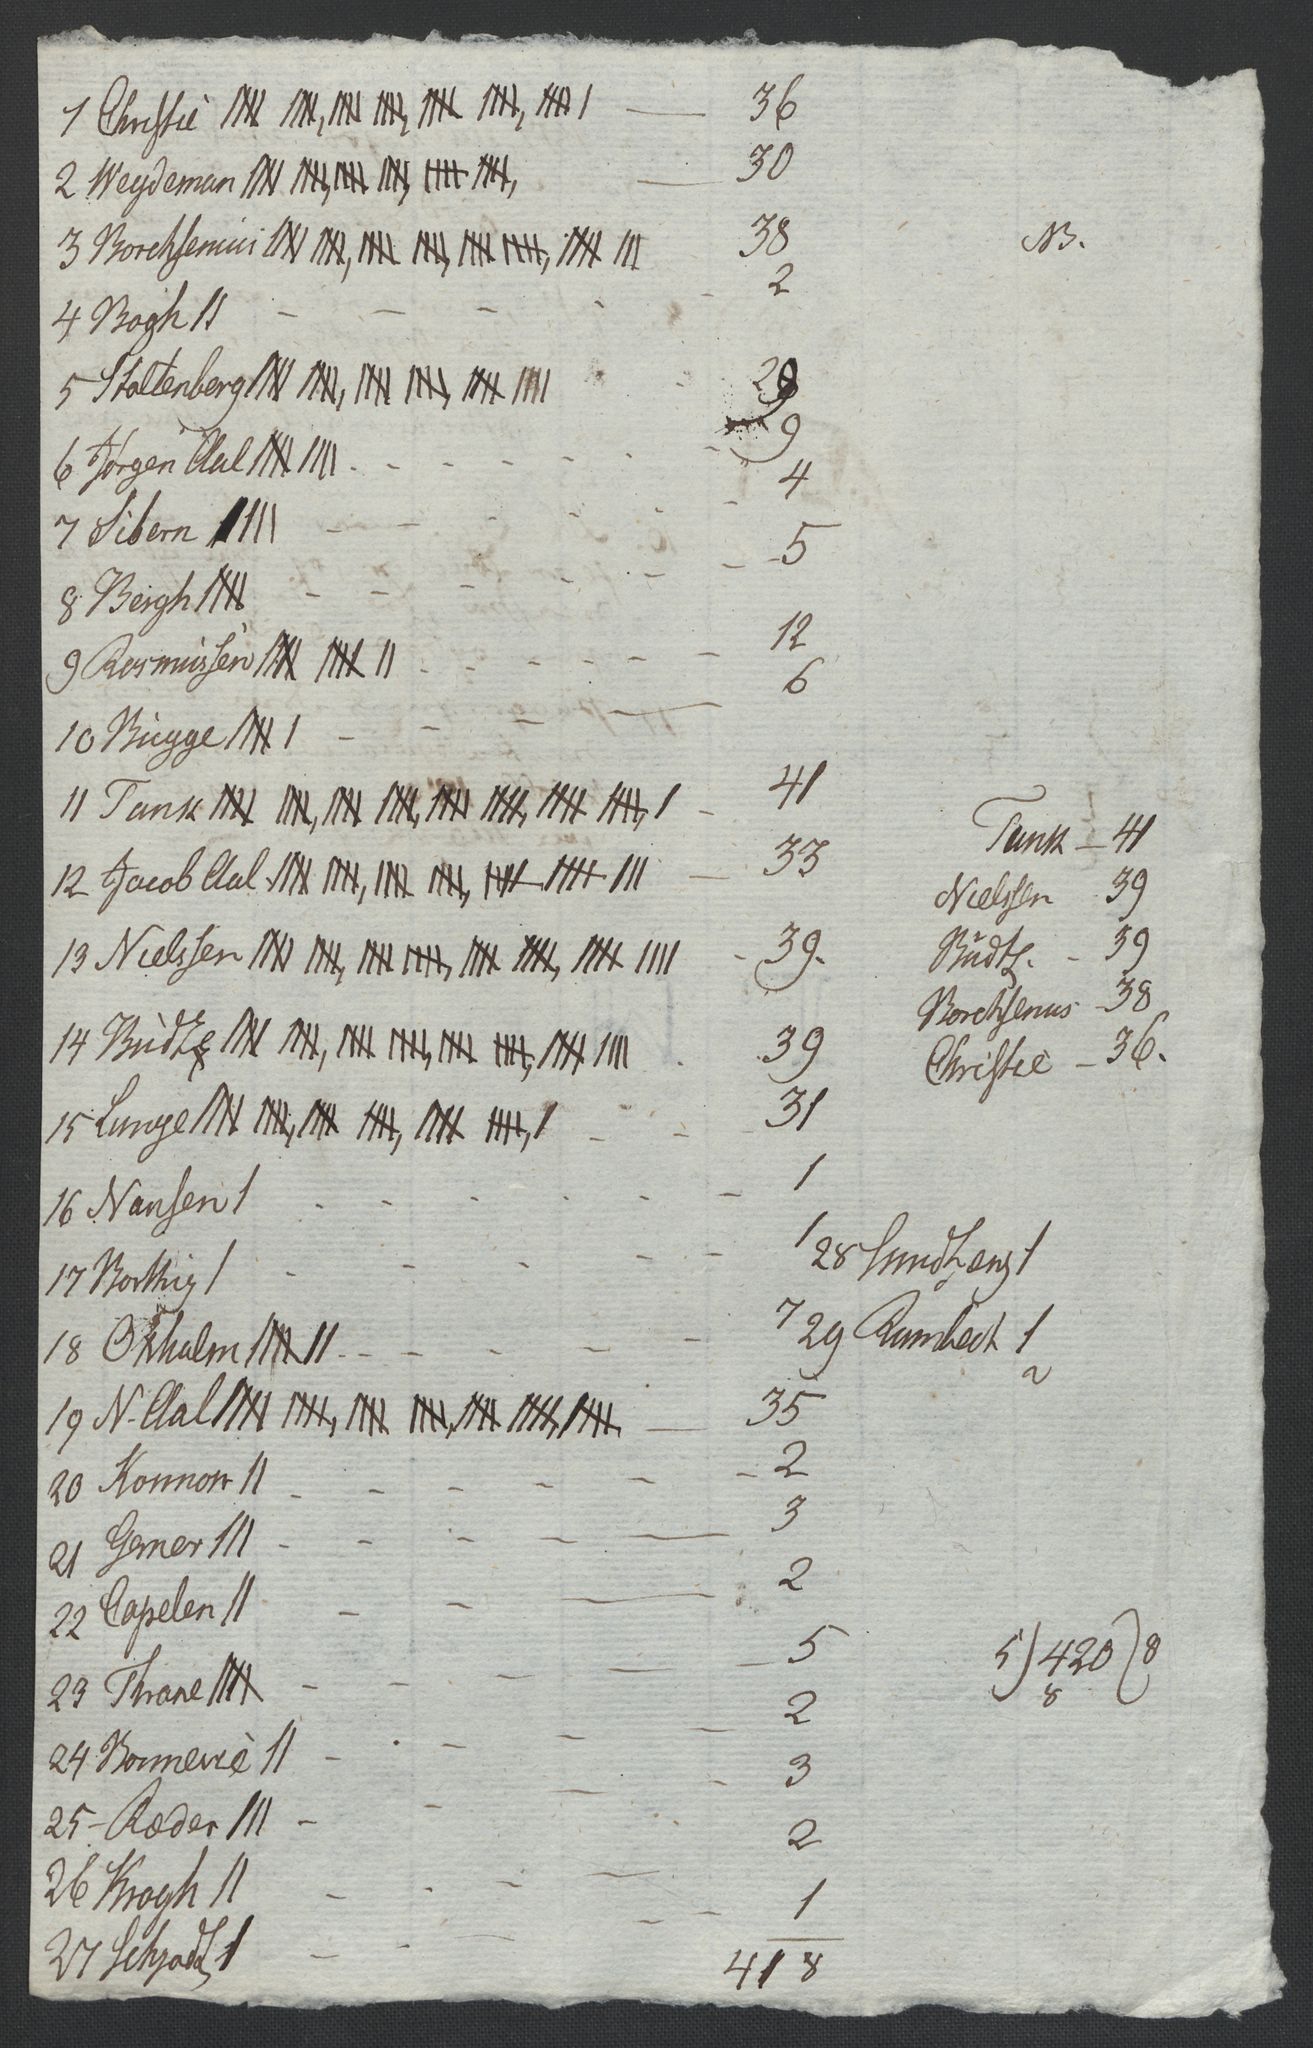 1 Christie 36
2 Weydeman 30
3 Borchsenius 38
NB.
4 Bogh 2
5 Stoltenberg 29
6 Jørgen Aal 9
7 Sibern 4
8 Bergh 5
9 Rasmussen 12
10 Bugge 6
11 Tank 41
12 Jacob Aal 33
13 Nielssen 39.
14 Budtz 39
15 Lange 31
16 Nansen 1
17 Borthig 1
18 Oxholm 7
19 N. Aal 35
20 Konnow 2
21 Gerner 3
22 Capelen 2
23 Thrane 5
24 Bonnevie 2
25 Ræder 3
26 Krogh 2
27 Schjødtz 1
418
Tank 41
Nielssen 39
Budtz. 39
Borchsenus 38
Christie 36.
28 1
29 Rambech 1
2
5) 420 (8
8